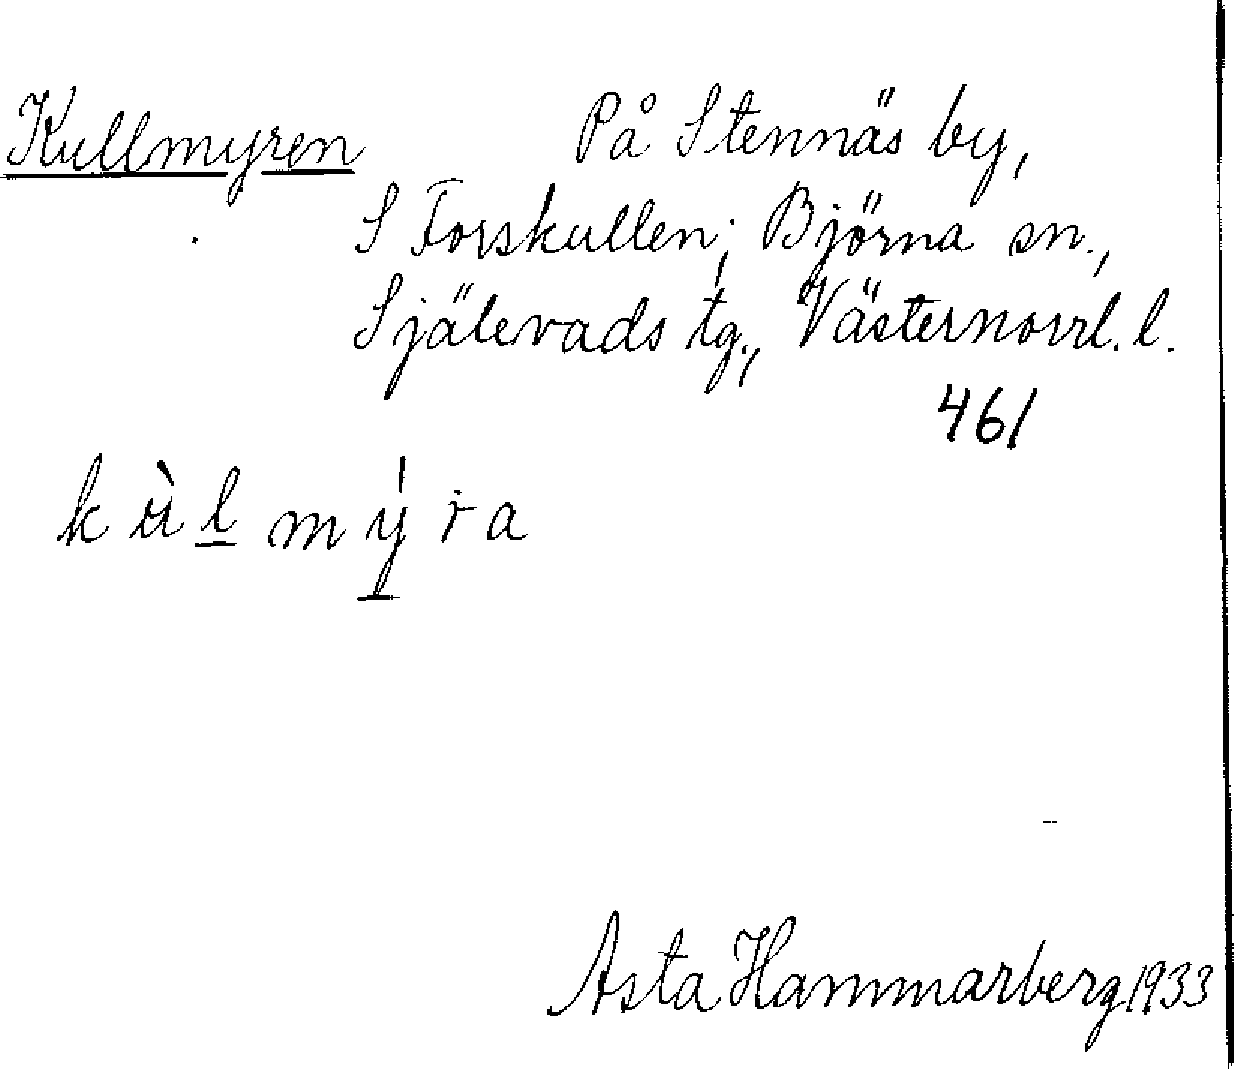 Kullmyren På Stennäs by,
S Forskullen; Björna sn.,
Själevads tg., Västernorrl. l.
461
kùlmy̍ra
Asta Hammarberg 1933